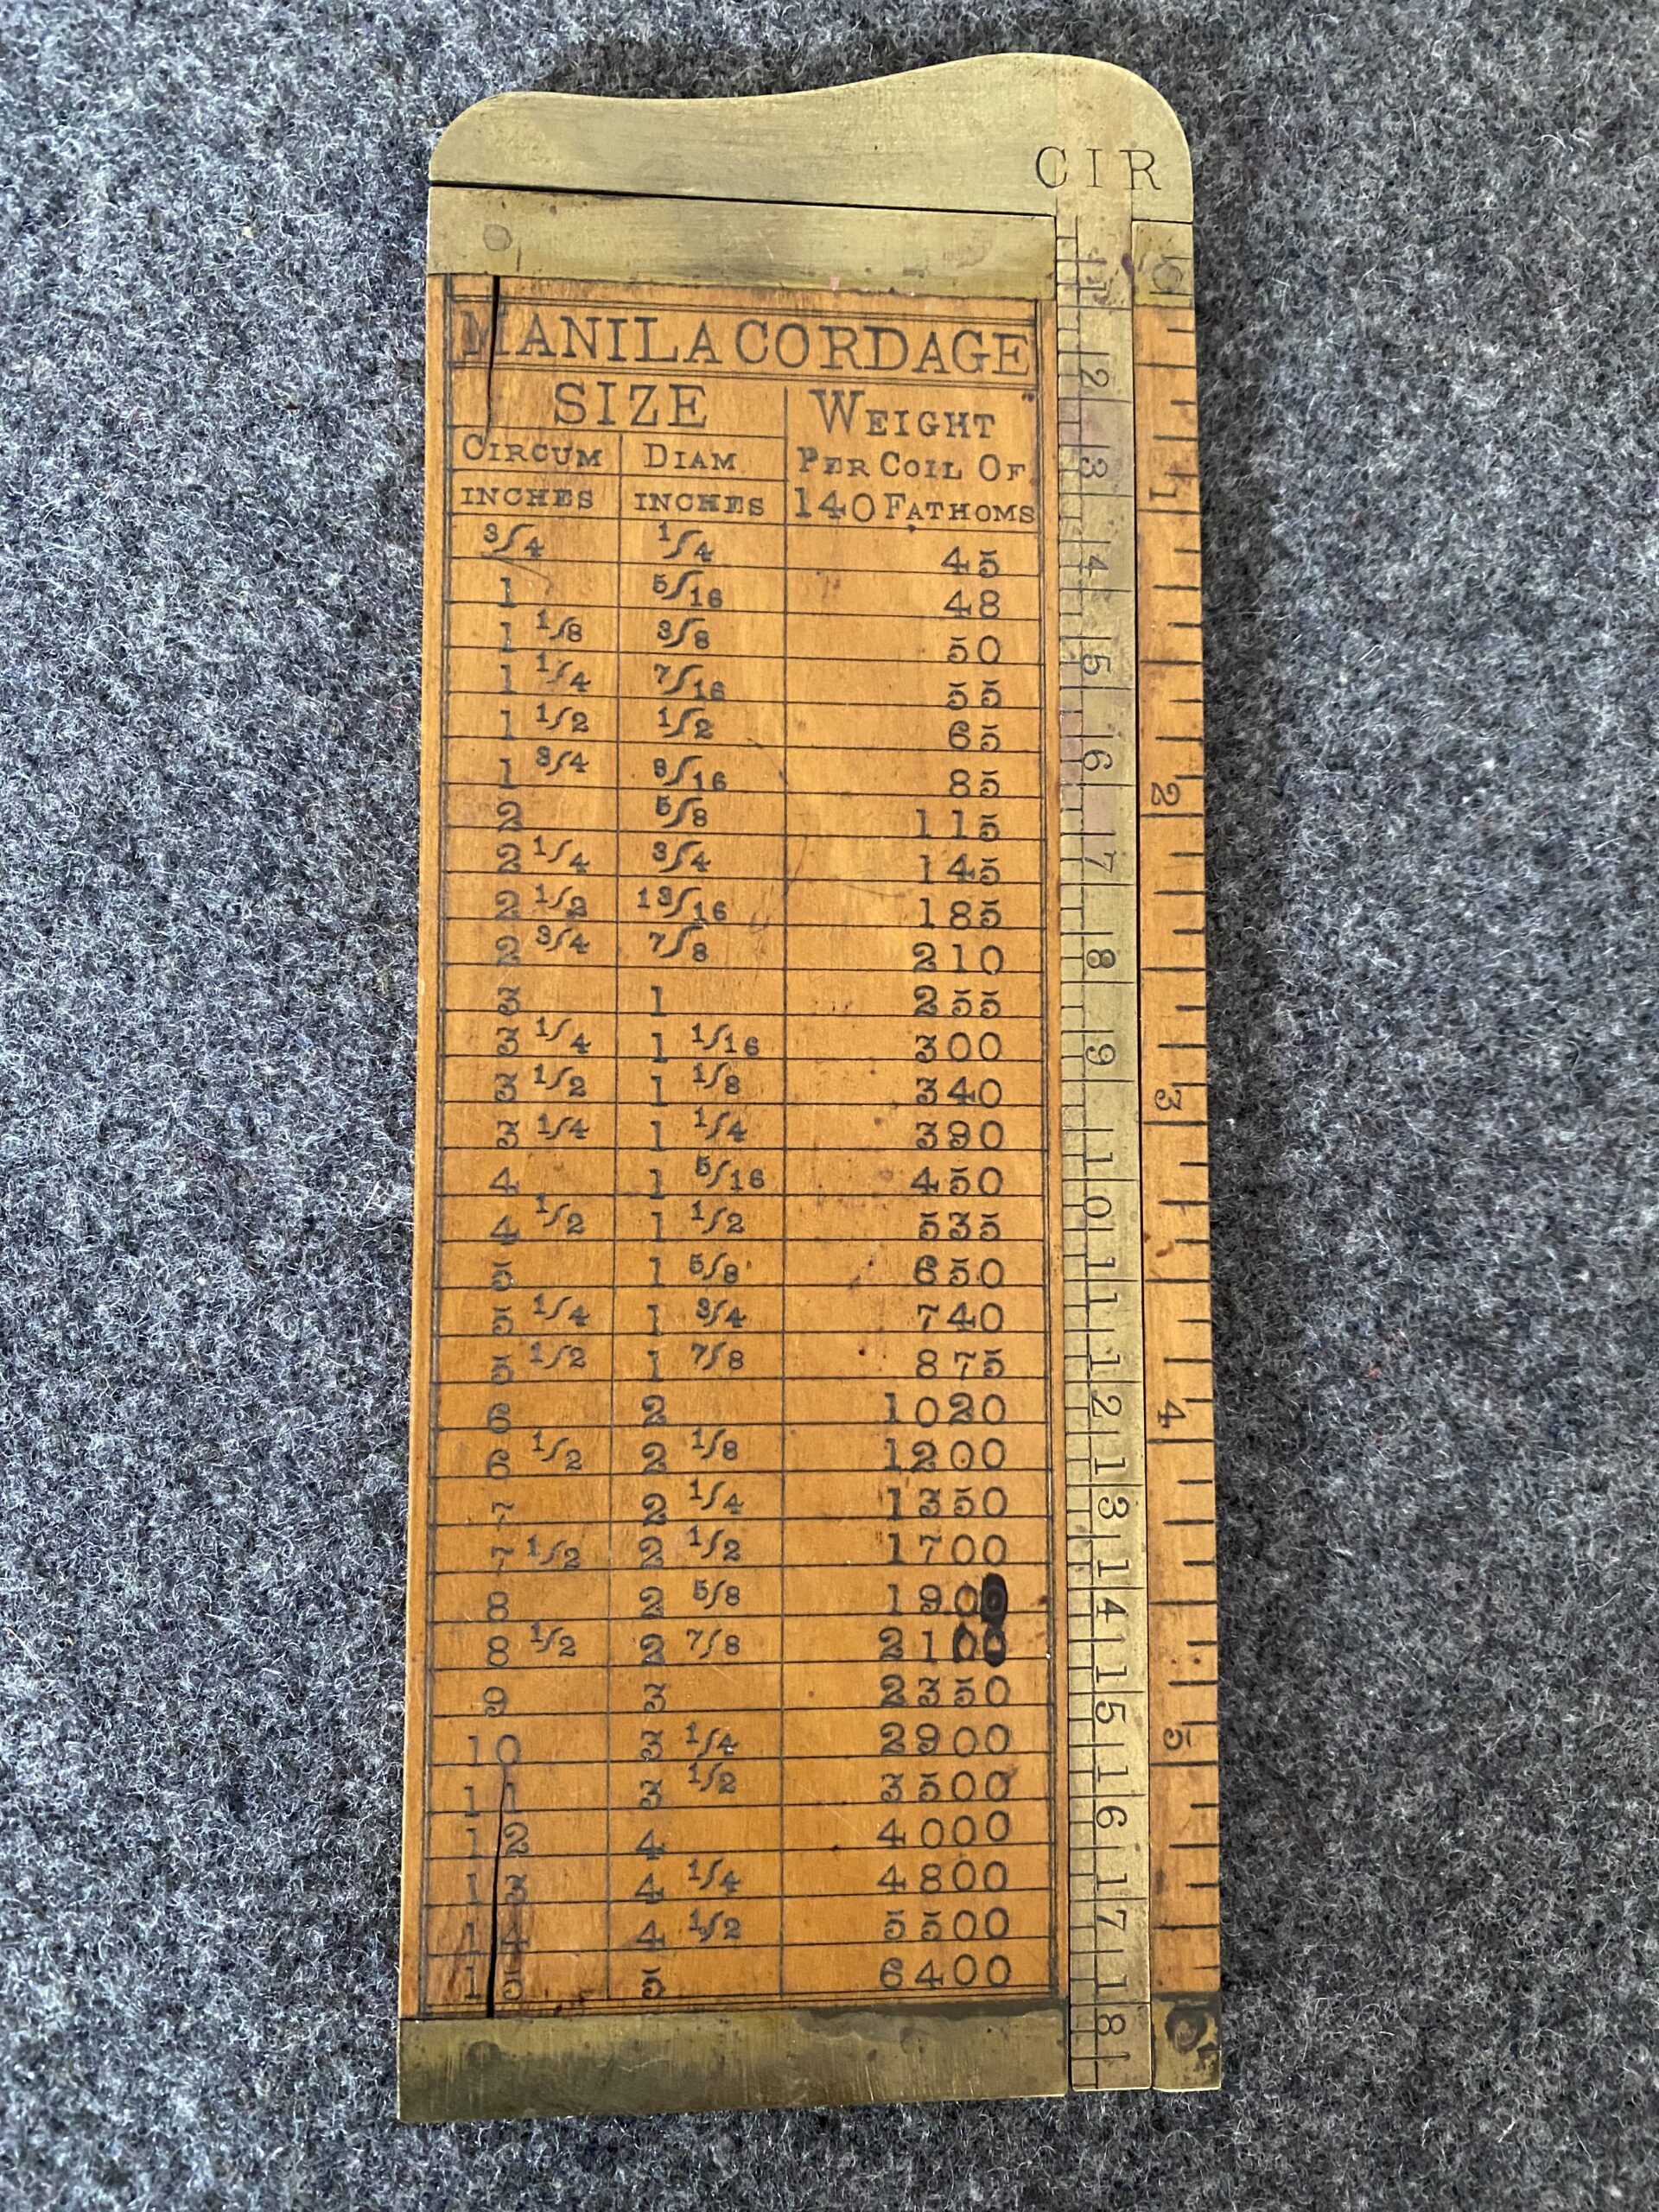 CIR
MANILA CORDAGE
SIZE
WEIGHT
CIRCUM DIAM PER COIL OF
INCHES INCHES 140 FATHOMS
3/4 1/4 45
1 5/16 48
1 1/8 3/8 50
1 1/4 7/16 55
1 1/2 1/2 65
1 3/4 9/16 85
2 5/8 115
2 1/4 3/4 145
2 1/2 13/16 185
2 3/4 7/8 210
3 1 255
3 1/4 1 1/16 300
3 1/2 1 1/8 340
3 1/4 1 1/4 390
4 1 5/16 450
4 1/2 1 1/2 535
5 1 5/8 650
5 1/4 1 3/4 740
5 1/2 1 7/8 875
6 2 1020
6 1/2 2 1/8 1200
7 2 1/4 1350
7 1/2 2 1/2 1700
8 2 5/8 1900
8 1/2 2 7/8 2100
9 3 2350
10 3 1/4 2900
11 3 1/2 3500
12 4 4000
13 4 1/4 4800
14 4 1/2 5500
15 5 6400
1 2 3 4 5 6 7 8 9 10 11 12 13 14 15 16 17 18
1 2 3 4 5